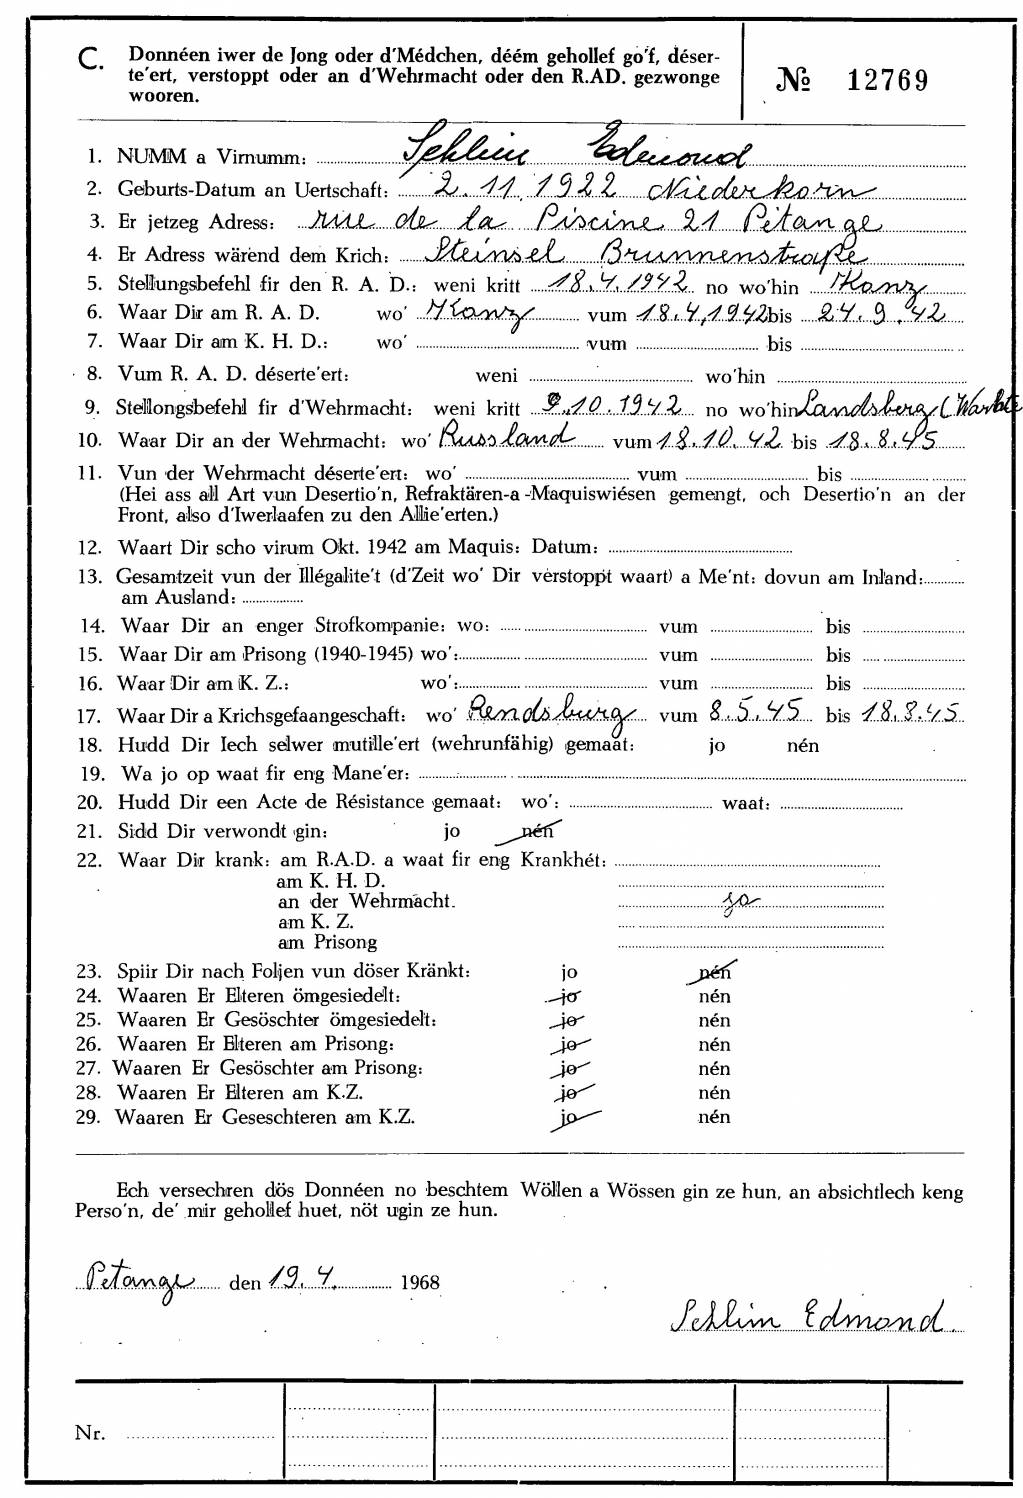 C. Donnéen iwer de Jong oder d'Médchen, déém gehollef go'f, déser-
te'ert, verstoppt oder an d'Wehrmacht oder den R.AD. gezwonge
wooren.
№ 12769
1. NUMM a Virnumm: Schlim Edmond
2. Geburts-Datum an Uertschaft: 2.11.1922 Niederkorn
3. Er jetzeg Adress: rue de la Piscine 21 Pétange
4. Er Adress wärend dem Krich: Steinsel Brunnenstraße
5. Stellungsbefehl fir den R. A. D.: weni kritt 18.4.1942 no wo'hin Kanz
6. Waar Dir am R. A. D. wo' Kanz vum 18.4.1942 bis 24.9.42
7. Waar Dir am K. H. D.: wo' vum bis
8. Vum R. A. D. déserte'ert: weni wo'hin
9. Stellongsbefehl fir d'Wehrmacht: weni kritt 9.10.1942 no wo'hin Landsberg (Warthe
10. Waar Dir an der Wehrmacht: wo' Russland vum 18.10.42 bis 18.8.45
11. Vun der Wehrmacht déserte'ert: wo' vum bis
(Hei ass all Art vun Desertio'n, Refraktären-a-Maquiswiésen gemengt, och Desertio'n an der
Front, also d'Iwerlaafen zu den Allie'erten.)
12. Waart Dir scho virum Okt. 1942 am Maquis: Datum:
13. Gesamtzeit vun der Illégalite't (d'Zeit wo' Dir verstoppt waart) a Me'nt: dovun am Inland:
am Ausland:
14. Waar Dir an enger Strofkompanie: wo: vum bis
15. Waar Dir am Prisong (1940-1945) wo': vum bis
16. Waar Dir am K. Z.: wo': vum bis
17. Waar Dir a Krichsgefaangeschaft: wo' Rendsburg vum 8.5.45 bis 18.8.45
18. Hudd Dir Iech selwer mutille'ert (wehrunfähig) gemaat: jo nén
19. Wa jo op waat fir eng Mane'er:
20. Hudd Dir een Acte de Résistance gemaat: wo': waat:
21. Sidd Dir verwondt gin: jo nén
22. Waar Dir krank: am R.A.D. a waat fir eng Krankhét:
am K. H. D.
an der Wehrmacht. jo
am K. Z.
am Prisong
23. Spiir Dir nach Foljen vun döser Kränkt: jo nén
24. Waaren Er Elteren ömgesiedelt: jo nén
25. Waaren Er Gesöschter ömgesiedelt: jo nén
26. Waaren Er Elteren am Prisong: jo nén
27. Waaren Er Gesöschter am Prisong: jo nén
28. Waaren Er Elteren am K.Z. jo nén
29. Waaren Er Geseschteren am K.Z. jo nén
Ech versechren dös Donnéen no beschtem Wöllen a Wössen gin ze hun, an absichtlech keng
Perso'n, de' mir gehollef huet, nöt ugin ze hun.
Petange den 19.4. 1968
Schlim Edmond
Nr.